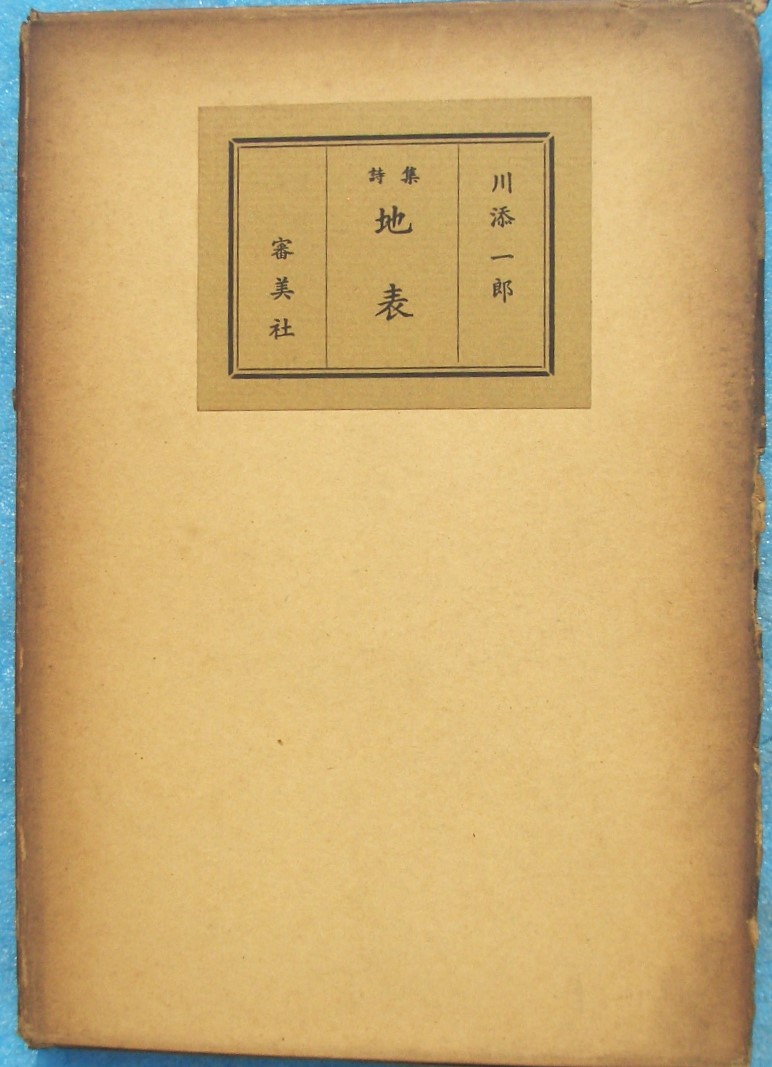 川添一郎
詩集
地表
審美社